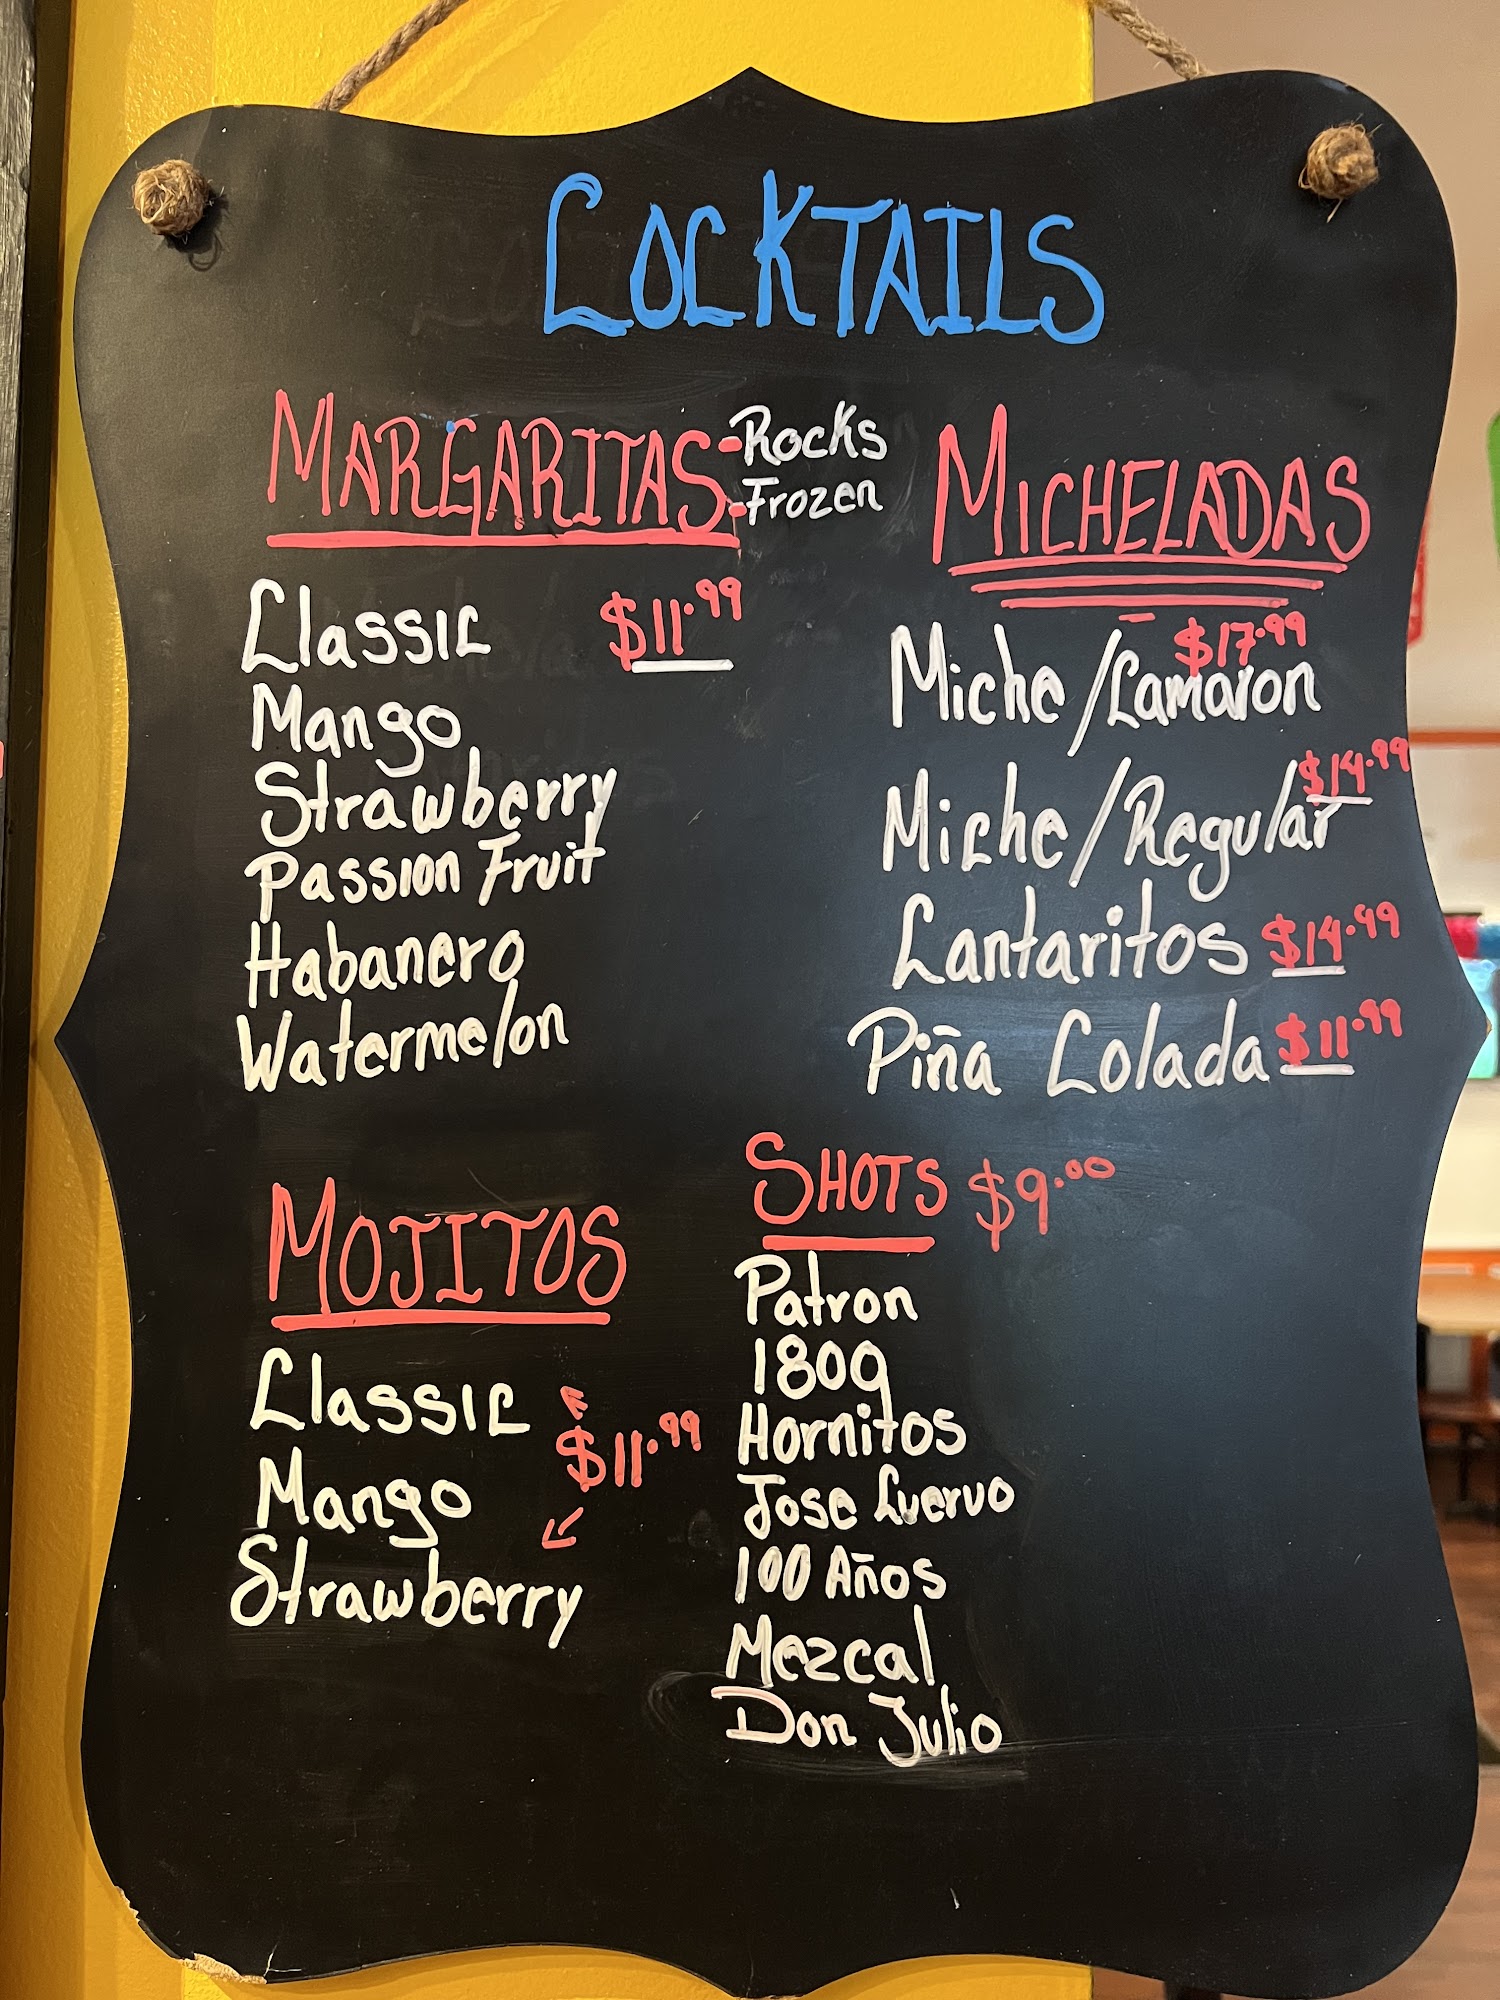 COCKTAILS
MARGARITAS - Rocks
- Frozen
Classic $11.99
Mango
Strawberry
Passion Fruit
Habanero
Watermelon
MICHELADAS
$17.99
Miche/Camaron
$14.99
Miche/Regular
Cantaritos $14.99
Piña Colada $11.99
MOJITOS
Classic
Mango $11.99
Strawberry
SHOTS $9.00
Patron
1800
Hornitos
Jose Cuervo
100 Años
Mezcal
Don Julio